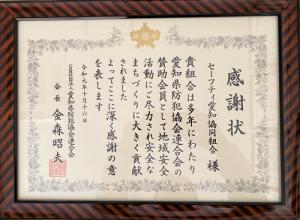 感謝状
セーフティ愛知協同組合 様
貴組合は多年にわたり
愛知県防犯協会連合会の
賛助会員として地域安全
活動にご尽力され安全な
まちづくりに大きく貢献
されました
よってここに深く感謝の意
を表します
令和元年十月十六日
愛知県防犯協会連合会
会長 金森昭夫